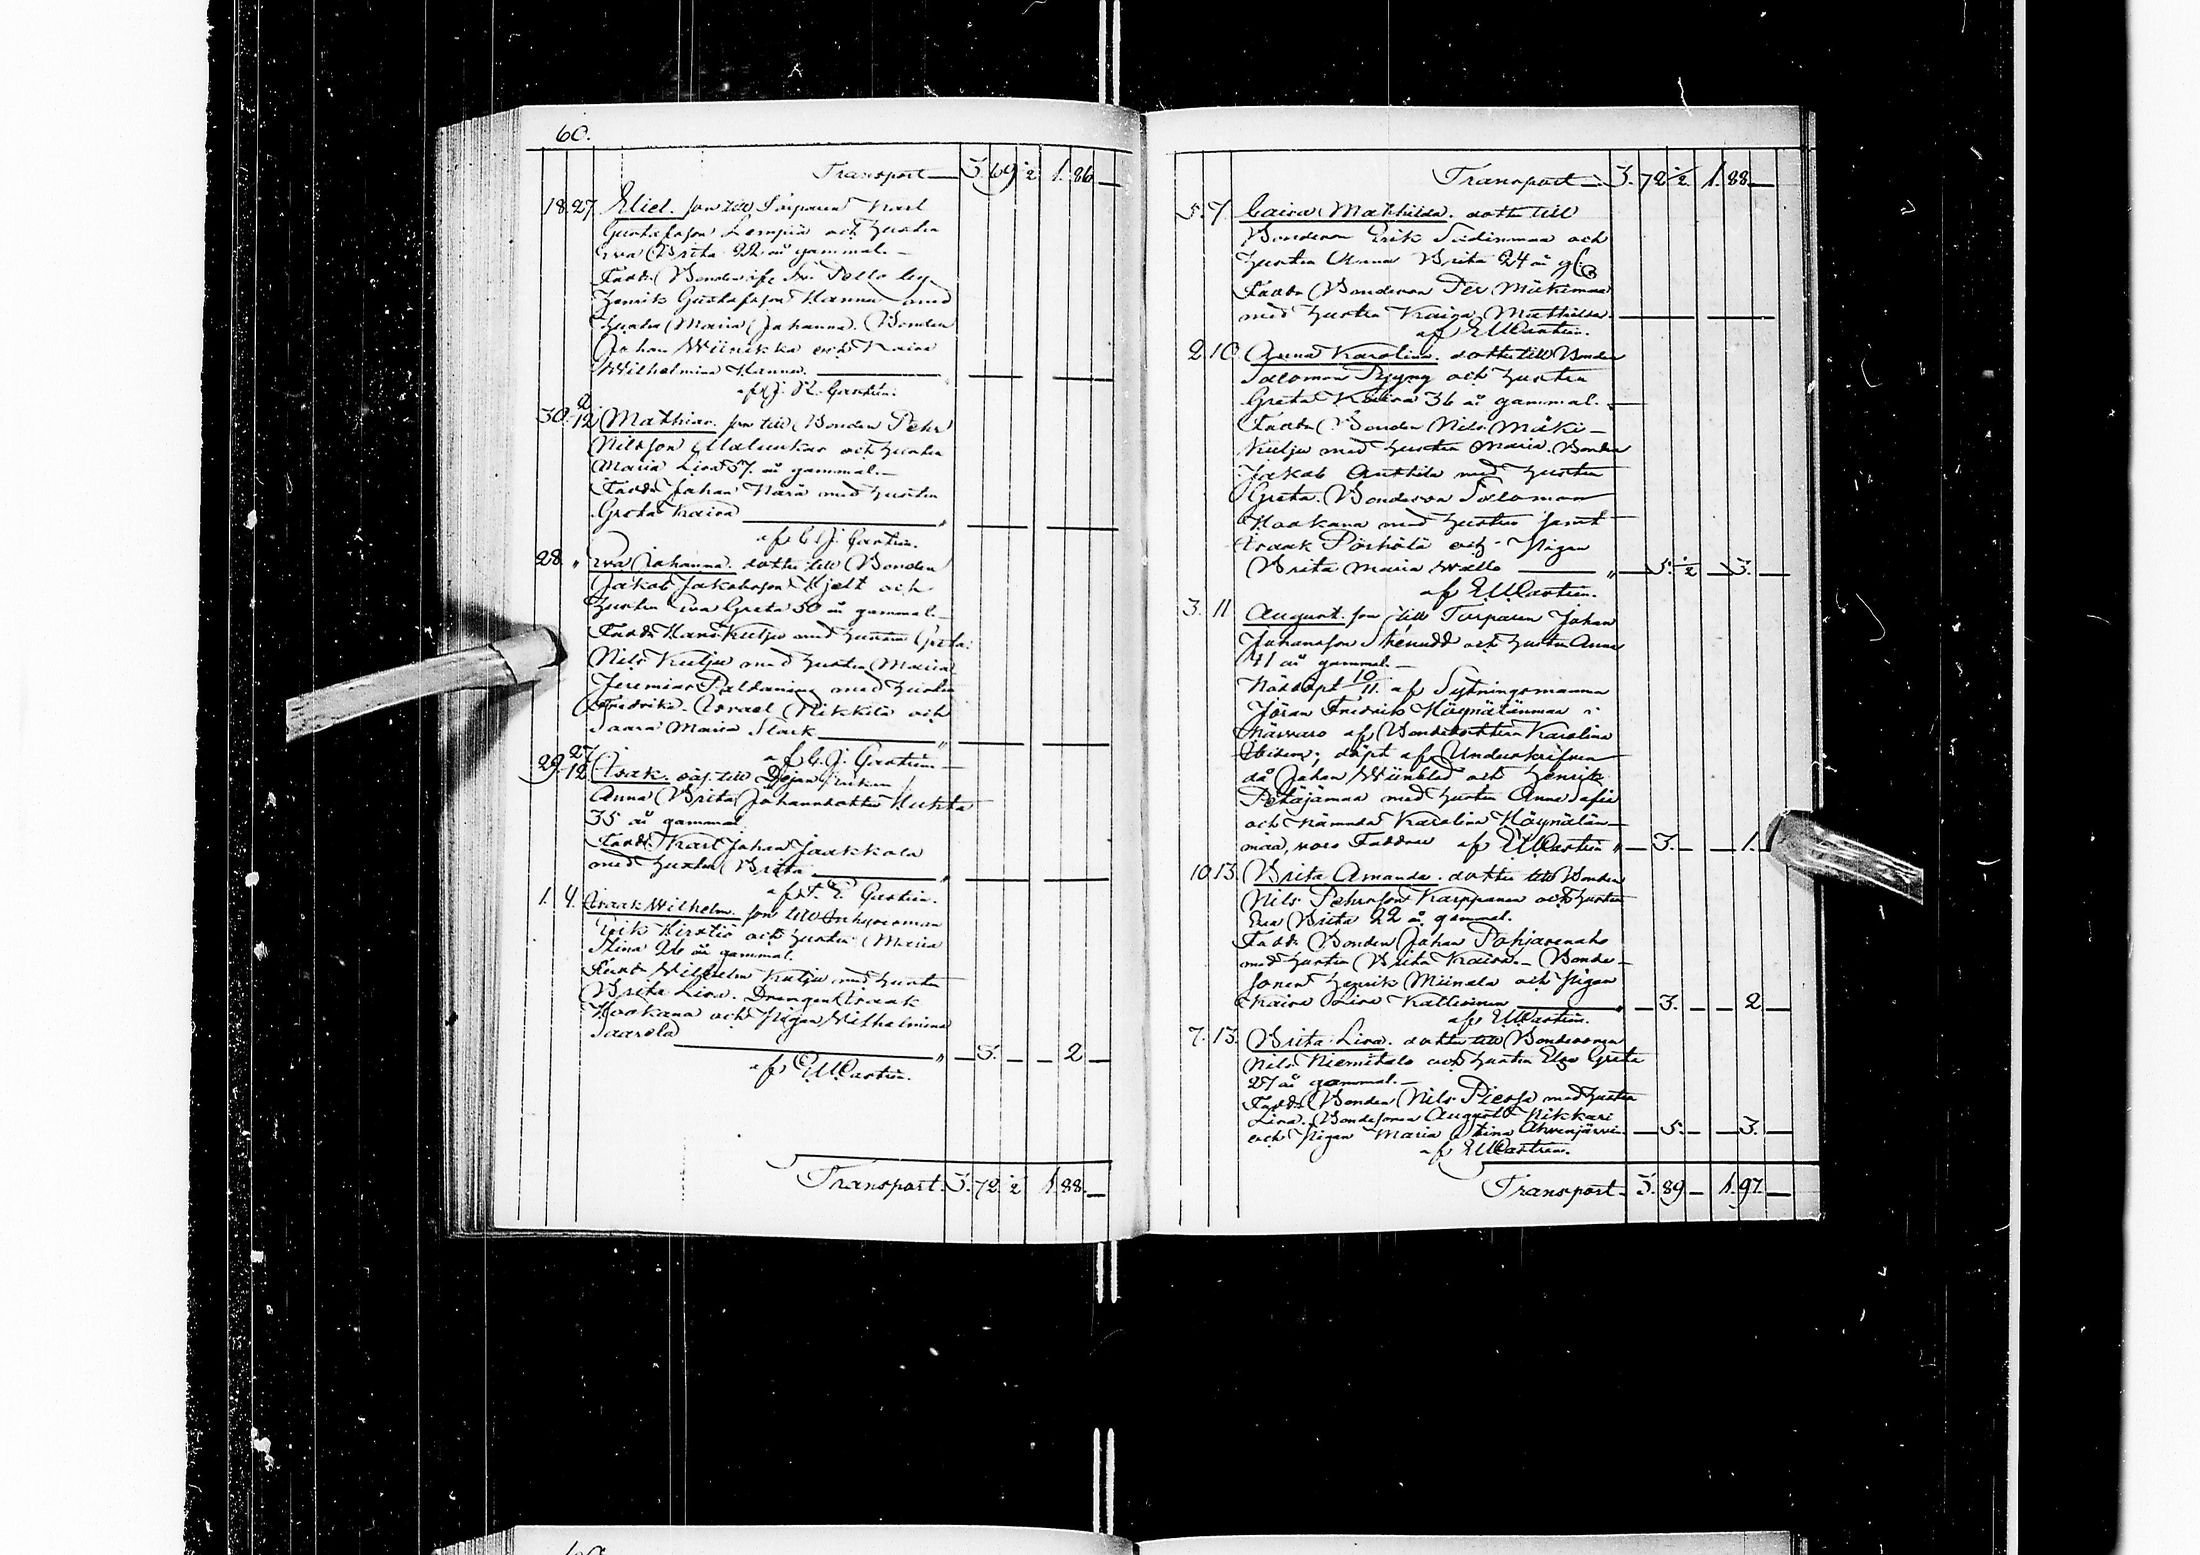 60.
Transport 3. 69 1/2 1. 86
18. 27. Eliel. son till Torparen Karl
Gustafsson Lempiä och hustru
Eva Brita 22 år gammal.
Faddr. Bonden
Henrik Gustafsson Hannu med
hustru Maria Johanna. Bonden
Johan Wiinikka och Kaisa
Wilhelmina Hannu.
af J. R. Castrén.
30. 2/12 Mathias. son till Bonden Pehr
Nilsson och hustru
Maria Lisa 37. år gammal.
Faddr. Johan Harå med hustru
Greta Kaisa
af C. J. Castrén.
28. " Eva Johanna. dotter till Bonden
Jakob Jakobsson Hjelt och
hustru Eva Greta 30 år gammal.
Faddr. Hans Kulju med hustru Greta.
Nils Kulju med hustru Maria
Jeremias Paldanius med hustru
Fredrika. Israel Nikkilä och
Saara Maria Stark
af C. J. Castrén
29. 27/12 Isak. oäg. till
Anna Brita Johansdotter Huhta
35 år gammal
Faddr. Karl Johan Jaakkola
med hustru Brita
af F. E. Castrén.
1. 4. Isaak Wilhelm. son till Inhysesman
Erik Hirstiö och hustru Maria
Stina 26 år gammal.
Faddr. Wilhelm Kulju med hustru
Brita Lisa. Drengen Isaak
Hookana och Pigan Wilhelmina
Saarela 3. 2
af E W Castrén.
Transport. 3. 72. 1/2 1. 88.
Transport 3. 72 1/2 1. 88
5. 7. Caisa Mathilda. dotter till
Bondeson Erik Sadinmaa och
hustru Anna Brita 24 år gl.
Faddr. Bondeson Per Mäkimaa
med hustru Kaisa Mathilda.
af E W Castrén.
2. 10. Anna Karolina. dotter till Bonden
Salomon Pyyny och hustru
Greta Kaisa 36 år gammal.
Faddr. Bonden Nils Mäki-
kulju med hustru Maria. Bonden
Jakob Anttila med hustru
Greta. Bondeson Salomon
Hookana med hustru samt
Isaak Pörhölä och Pigan
Brita Maria Wallo " 5. 1/2 3.
af E W Castrén.
3. 11. August. son till Torparen Johan
Johansson Skrudd och hustru Anna
41 år gammal.
Nöddöpt 10/11. af Sytningsmannen
Jöran Fredrik Höynälänmaa i
närvaro af Bondedottern Karolina
Ibidem; döpt af Underskrifven
då Johan Wiinblad och Henrik
Petäjämaa med hustru Anna Sofie
och nämnda Karolina Höynälän-
maa, voro Faddrar af E W Castrén " 3. 1.
10. 13. Brita Amanda. dotter till Bonden
Nils Pehrsson Karppanen och hustru
Eva Brita 22 år gammal.
Faddr. Bonden Johan Pohjarenaho
med hustru Brita Kaisa. Bonde-
sonen Henrik Miinala och Pigan
Kaisa Lisa Kallioinen " 3. 2
af E W Castrén.
7. 13. Brita Lisa. dotter till Bondesonen
Nils Niemitalo och hustru Elsa Greta
27 år gammal.
Faddr. Bonden Nils Pieosa med hustru
Lisa. Bondesonen August Nikkari
och Pigan Maria Stina Ahvenjärvi. 5. 3.
af E W Castrén.
Transport. 3. 89 1. 97.